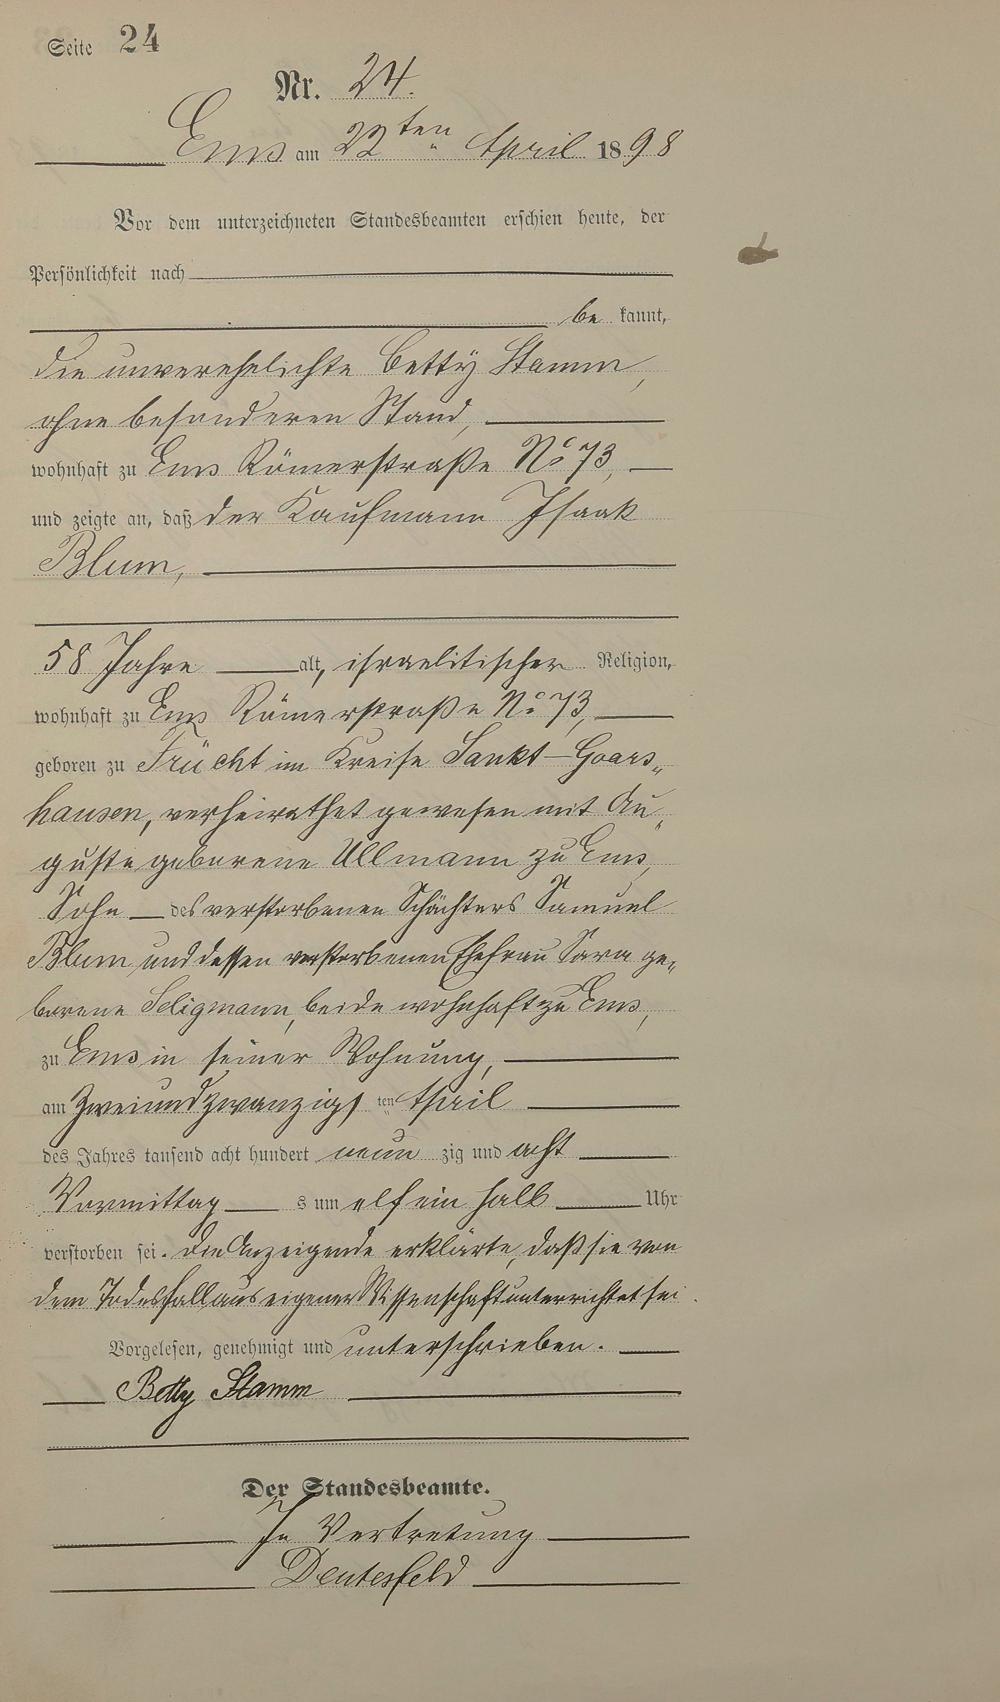 Seite 24
Nr. 24.
Ems am 22ten April 1898
Vor dem unterzeichneten Standesbeamten erschien heute, der
Persönlichkeit nach
be kannt,
die unverehelichte Betty Stamm,
ohne besonderen Stand,
wohnhaft zu Ems Römerstraße No 73,
und zeigte an, daß der Kaufmann Isaak
Blum,
58 Jahre alt, israelitischer Religion,
wohnhaft zu Ems Römerstraße No 73,
geboren zu Frücht im Kreise Sankt-Goars„
hausen, verheirathet gewesen mit Au„
guste geborene Ullmann zu Ems,
Sohn des verstorbenen Schächters Samuel
Blum und dessen verstorbenen Ehefrau Sara ge„
borene Seligmann, beide wohnhaft zu Ems,
zu Ems in seiner Wohnung,
am Zweiundzwanzigsten April
des Jahres tausend acht hundert neunzig und acht
Vormittags um elf ein halb Uhr
verstorben sei. Die Anzeigende erklärte, daß sie von
dem Todesfall aus eigener Wissenschaft unterrichtet sei.
Vorgelesen, genehmigt und unterschrieben.
Betty Stamm
Der Standesbeamte.
In Vertretung
Deutesfeld